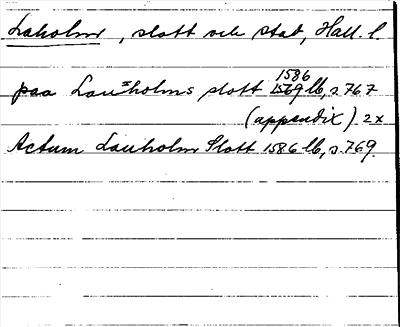 Laholm, slott och stad, Hall. l.
paa Lau=holms slott 1586 1569 lb, s. 767
(appendix) 2x
Actum Lauholm Slott 1586 lb, s. 769.